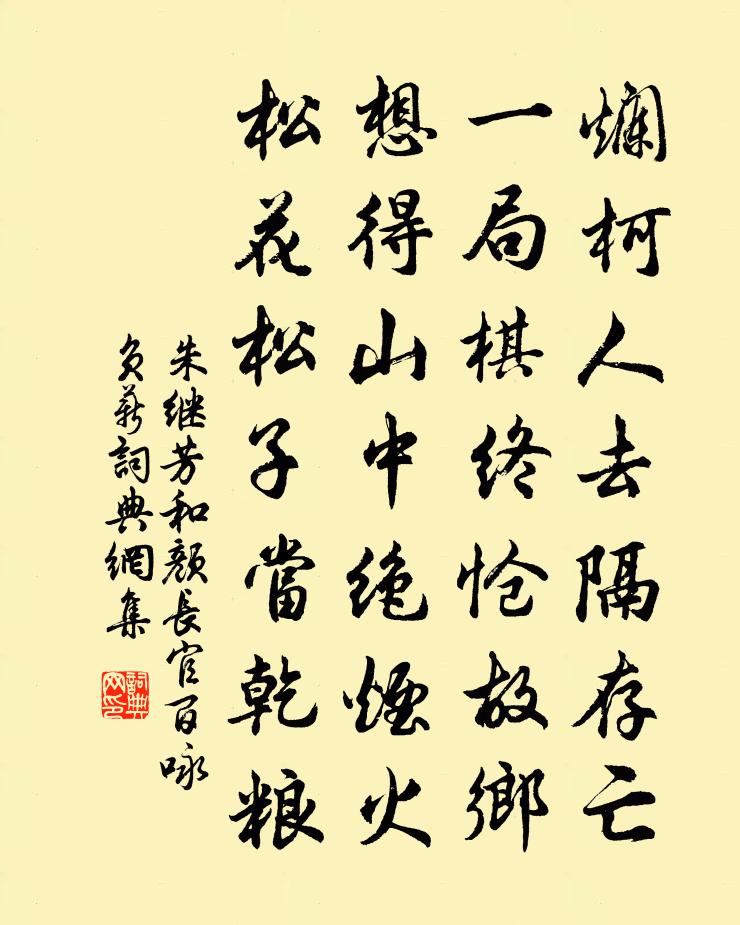 爛柯人去隔存亡
一局棋終愴故鄉
想得山中绝煙火
松花松子當乾粮
朱继芳和顏長官百咏
負薪詞典網集
詞典網印